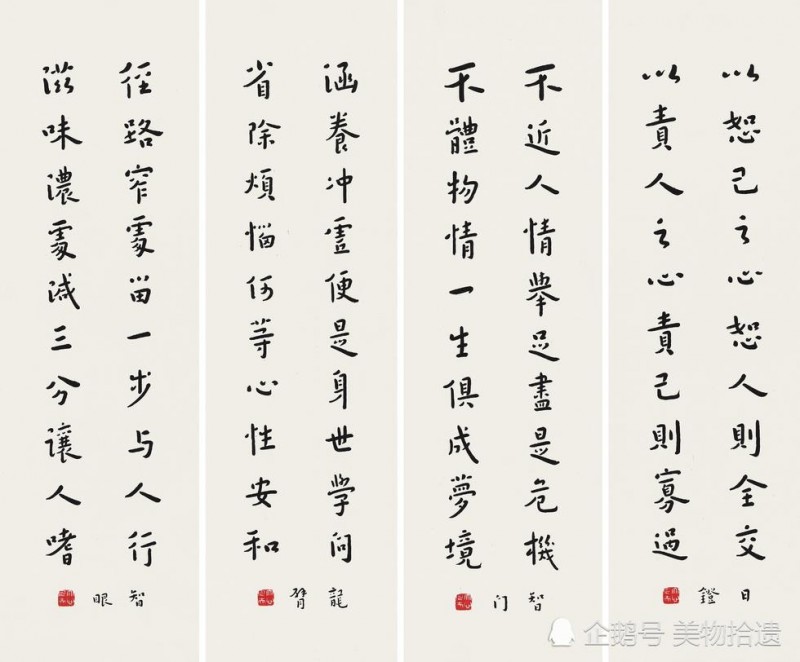 以恕己之心恕人則全交
以責人之心責己則寡過
日鐙
不近人情舉足盡是危機
不體物情一生俱成夢境
智门
涵養冲虛便是身世学问
省除煩惱何等心性安和
龍臂
径路窄處留一步与人行
滋味濃處減三分讓人嗜
智眼
企鹅号 美物拾遗